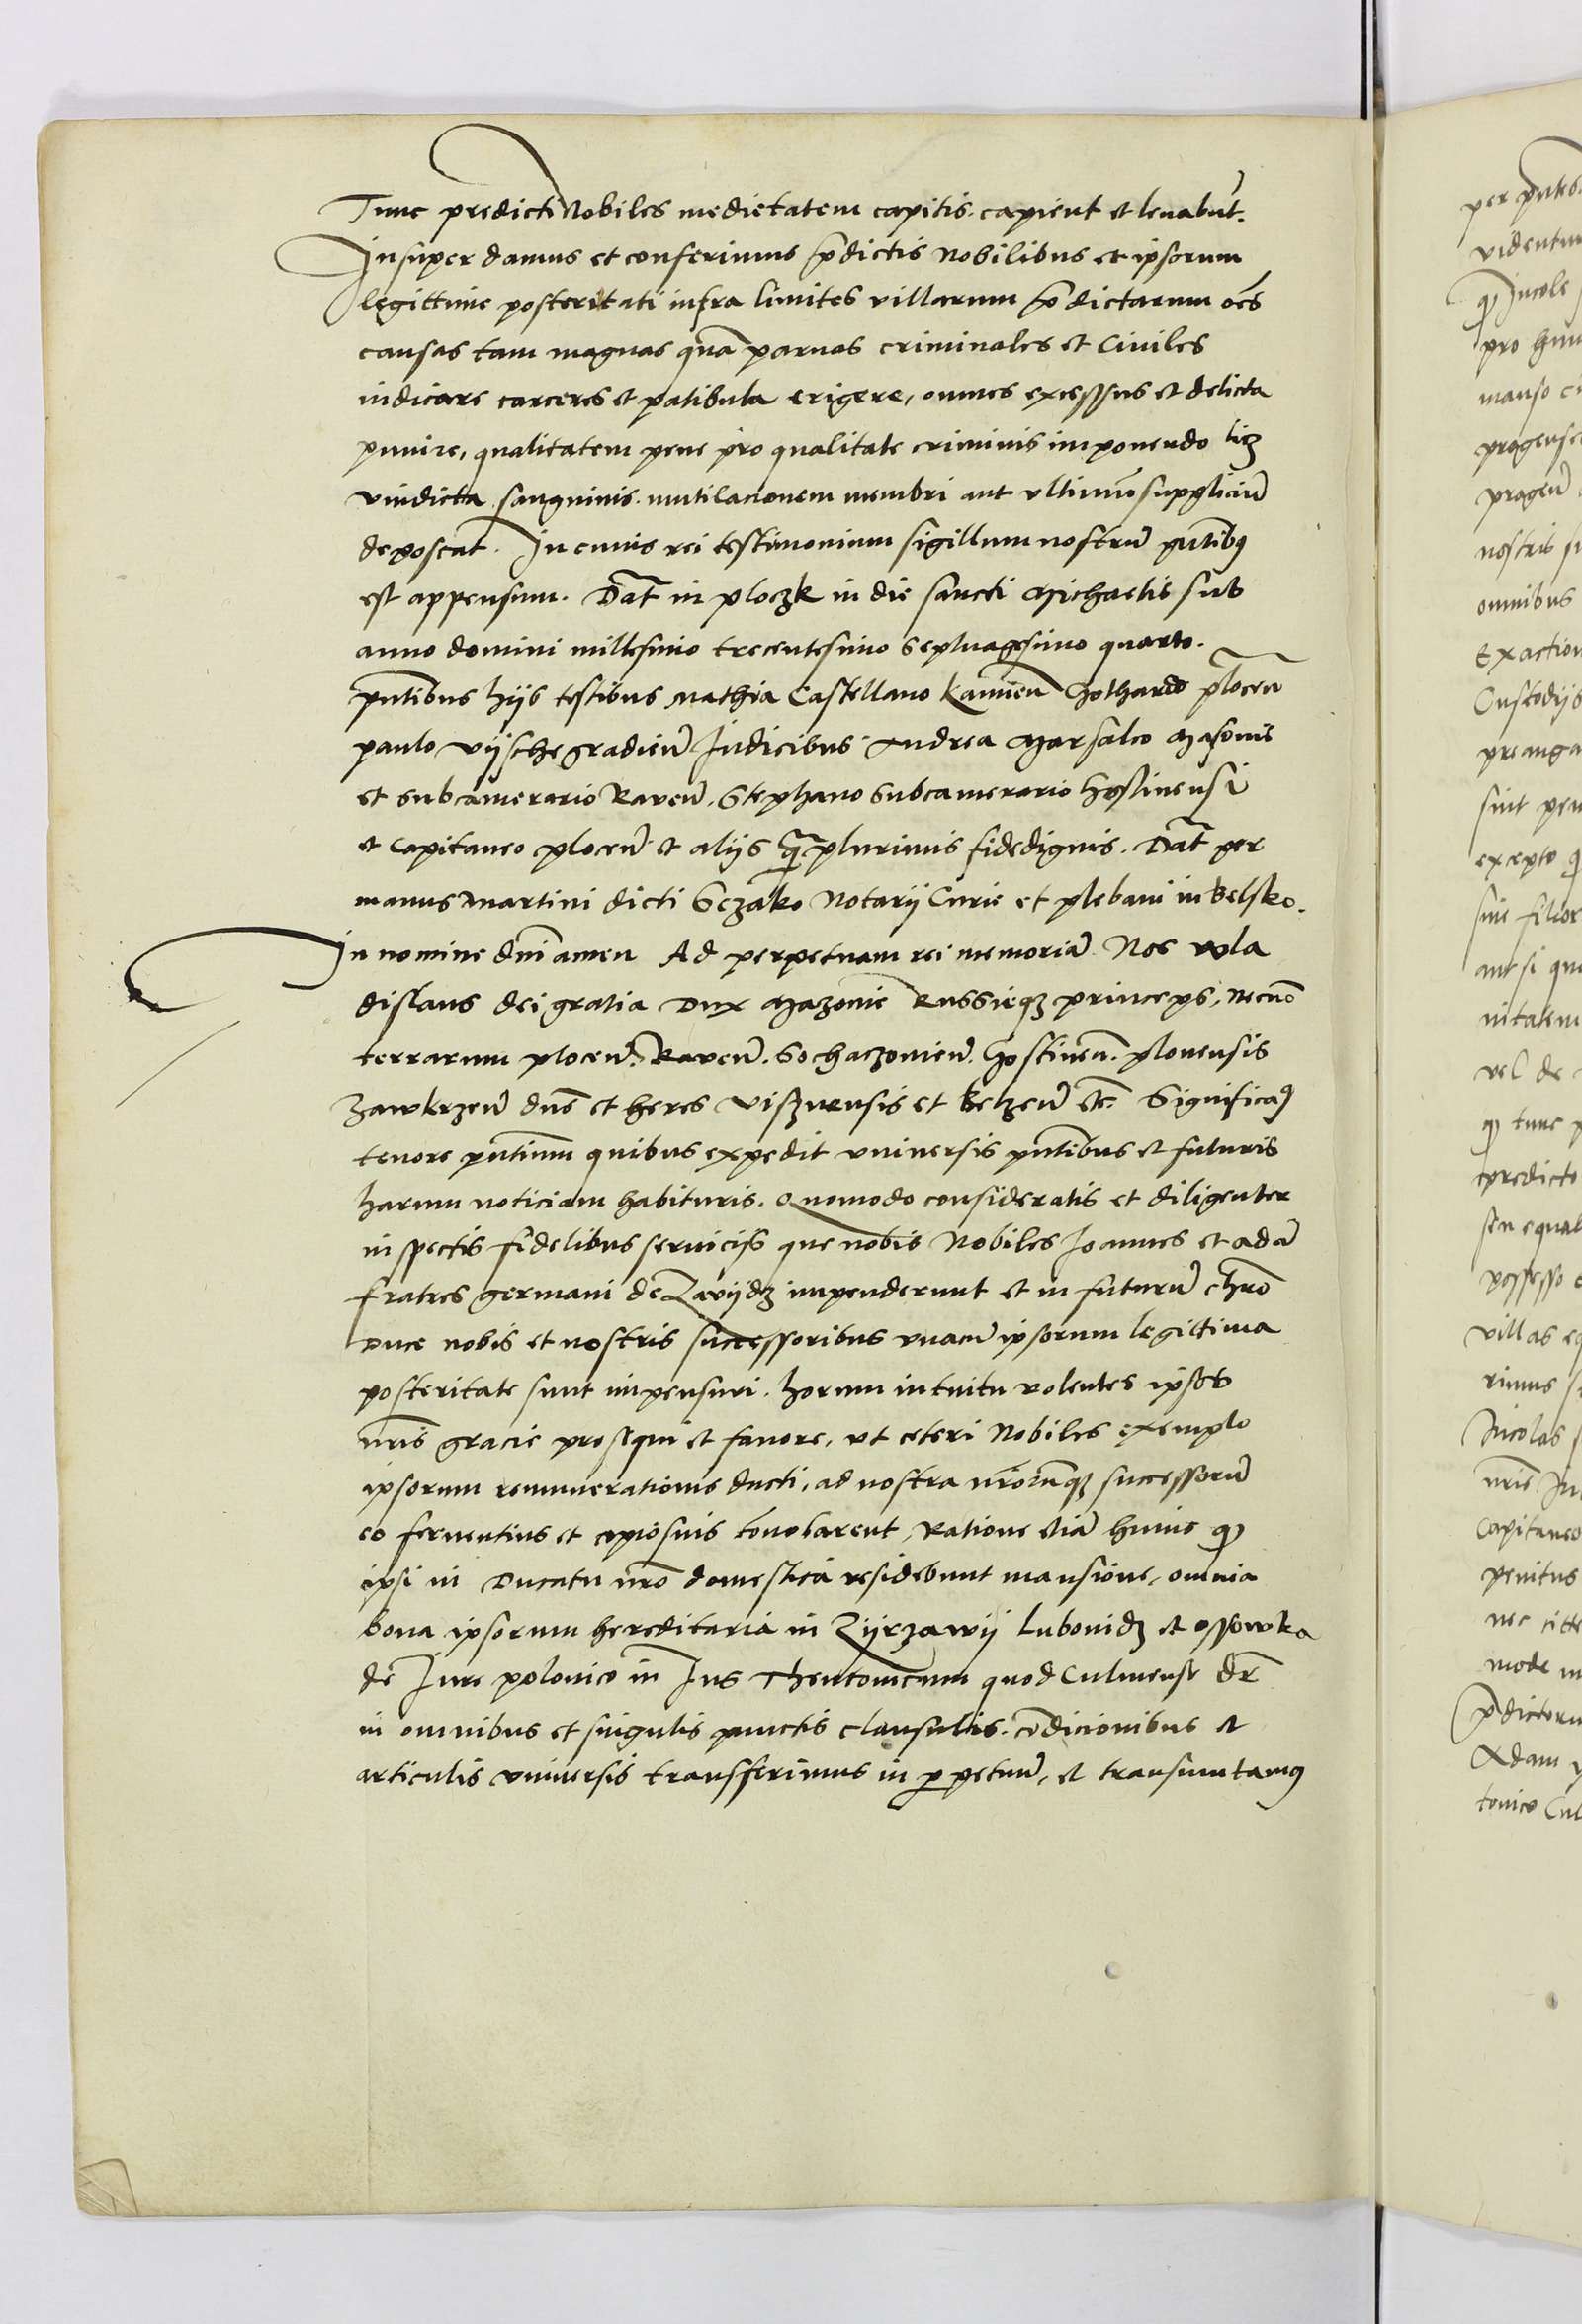 Tunc predicti Nobiles medietatem capitis. capient et leuabūt.
Insuper damus et conferimus p̄dictis Nobilibus et ipsorum
legittime posteritati infra limites villarum p̄dictarum oēs
causas tam magnas quā paruas criminales et Ciuiles
iudicare carceres et patibula erigere, omnes excessus et delicta
punire, qualitatem pene pro qualitate criminis imponendo licz
vindicta sanguinis. mutilacionem membri aut vltimū suppliciū
deposcat. In cuius rei testimonium sigillum nostrū pn̄tibꝰ
est appensum. Dat̄ in ploczk in die sancti Michaelis sub
anno domini millesimo trecentesimo septuagesimo quarto.
pn̄tibus hijs testibus Mathia Castellano Kamien̄ Gothardo plocen̄
paulo vijschegradien̄ Iudicibus Andrea Marsalco Masouie
et subcamerario Raven̄. Stephano subcamerario Gostinensi
et Capitaneo plocen̄ et alijs q̄plurimis fidedignis. Dat̄ per
manus Martini dicti Sczako Notarij Curie et plebani in Belsko.
In nomine dn̄i amen Ad perpetuam rei memoriā Nos wla
dislaus dei gratia Dux Mazouie Russieqꝫ princeps, necnō
terrarum plocen̄. Raven̄. Sochaczouien̄. Gostinen̄. plonensis
Zawkrzen̄ dn̄s et heres Visznensis et Belzen̄ etc̄. Significaꝰ
tenore pn̄tium quibus expedit vniuersis pn̄tibus et futuris
harum noticiam habituris. Quomodo consideratis et diligenter
inspectis fidelibus seruicijs que nobis Nobiles Ioannes et adā
fratres germani de Zavijdz impenderunt et in futurū chr̄o
Duce nobis et nostris successoribus vnacū ipsorum legittima
posteritate sunt impensuri. horum intuitu volentes ipsos
nr̄is gracie prosequi et fauore, vt ceteri Nobiles exemplo
ipsorum remunerationis ducti, ad nostra nr̄orūqꝫ successorū
eo feruentius et copiosius cōuolarent, Ratione etiā huius qꝫ
ipsi in Ducatu nr̄o domestica residebunt mansione, omnia
bona ipsorum hereditaria in Zijrzawij Lubonidz et ossowka
de Iure polonico in Ius Theutonicum quod Culmense dr̄
in omnibus et singulis punctis clausulis. cōdicionibus et
articulis vniuersis transferimus in ꝑpetuū, et transmutamꝰ